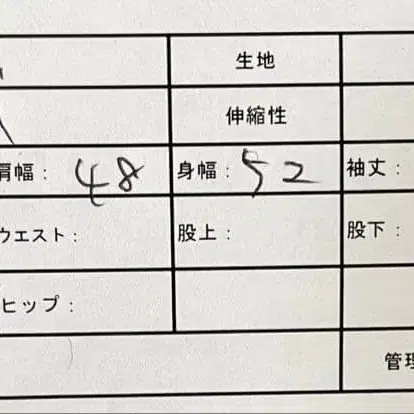 生地
伸縮性
肩幅： 48 身幅： 52 袖丈：
ウエスト： 股上： 股下：
ヒップ：
管理